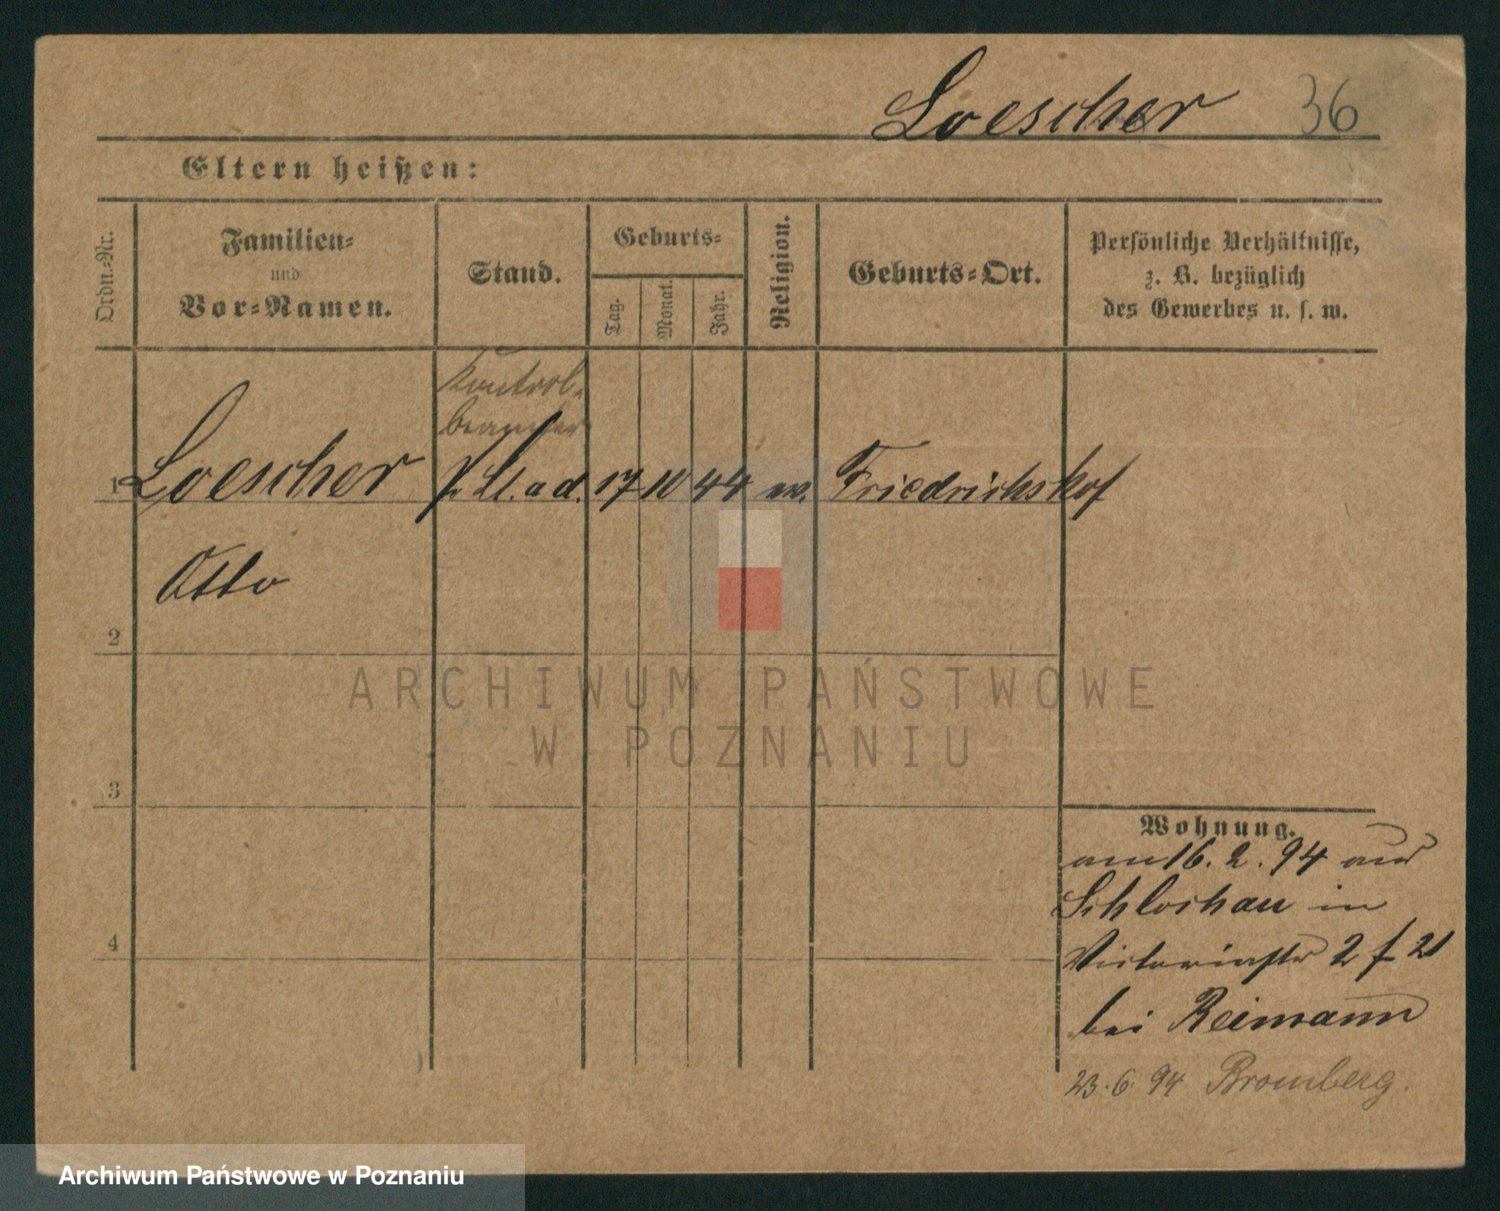 Loescher 36
Eltern heißen:
Ordn.-Nr.
Familien-
und
Vor-Namen.
Stand.
Geburts-
Tag.
Monat.
Jahr.
Religion.
Geburts-Ort.
Persönliche Verhältnisse,
z. B. bezüglich
des Gewerbes u. s. w.
Kontrol-
beamter
1 Loescher Lt. a d. 17 10 44 ev. Friedrichshof
Otto
2
ARCHIWUM PAŃSTWOWE
W POZNANIU
3
Wohnung.
am 16. 2. 94 aus
Schlochau in
4
Victoriastr 2 f 21
bei Reimann
23. 6 94 Bromberg.
Archiwum Państwowe w Poznaniu